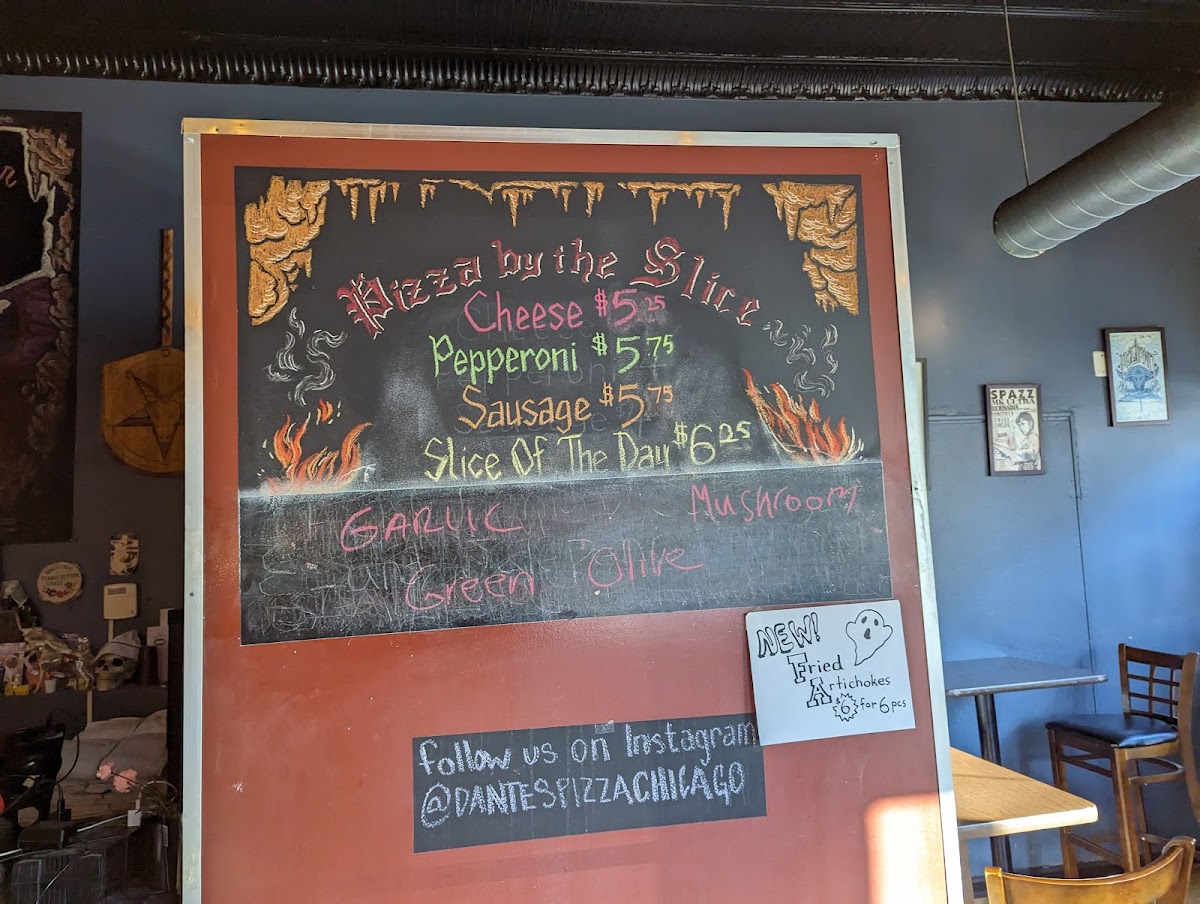 Pizza by the Slice
Cheese $5.25
Pepperoni $5.75
Sausage $5.75
Slice Of The Day $6.25
GARLIC
Mushroom
Green Olive
NEW!
Fried
Artichokes
$6 for 6 pcs
Follow us on Instagram
@DANTESPIZZACHICAGO
SPAZZ
MK ULTRA